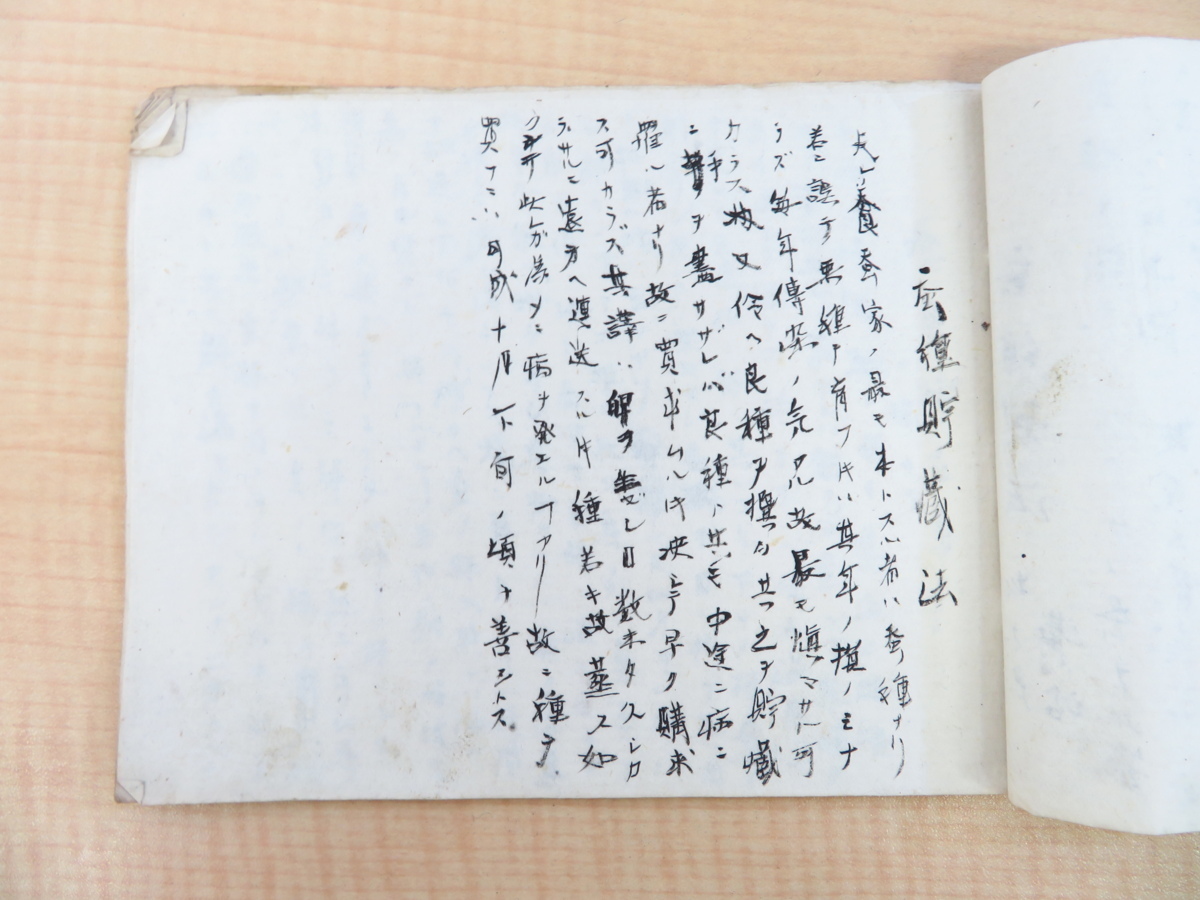 蚕種貯蔵法
夫レ養蚕家ノ最モ本トスル者ハ蚕種ナリ
若シ誤テ悪種ヲ育フ片ハ其年ノ損ノミナ
ラズ毎年傳染ノ気アル故最モ慎マサル可
カラス故又伶ヘ良種ヲ撰ム共之ヲ貯蔵
ニ手ヲ盡サザレバ良種ト共モ中途ニ病ニ
羅ル者ナリ故ニ買求ムル片ハ決シテ早ク購求
ス可カラズ其譯ハ繭ヲ生ゼシ日数未タ久シカ
ラサルニ遠方ヘ運送スル片種若キ故蒸ス如
クシテ此ガ為メニ病ヲ発スルヿアリ故ニ種ヲ
買フニハ可成十月下旬ノ頃ヲ善シトス